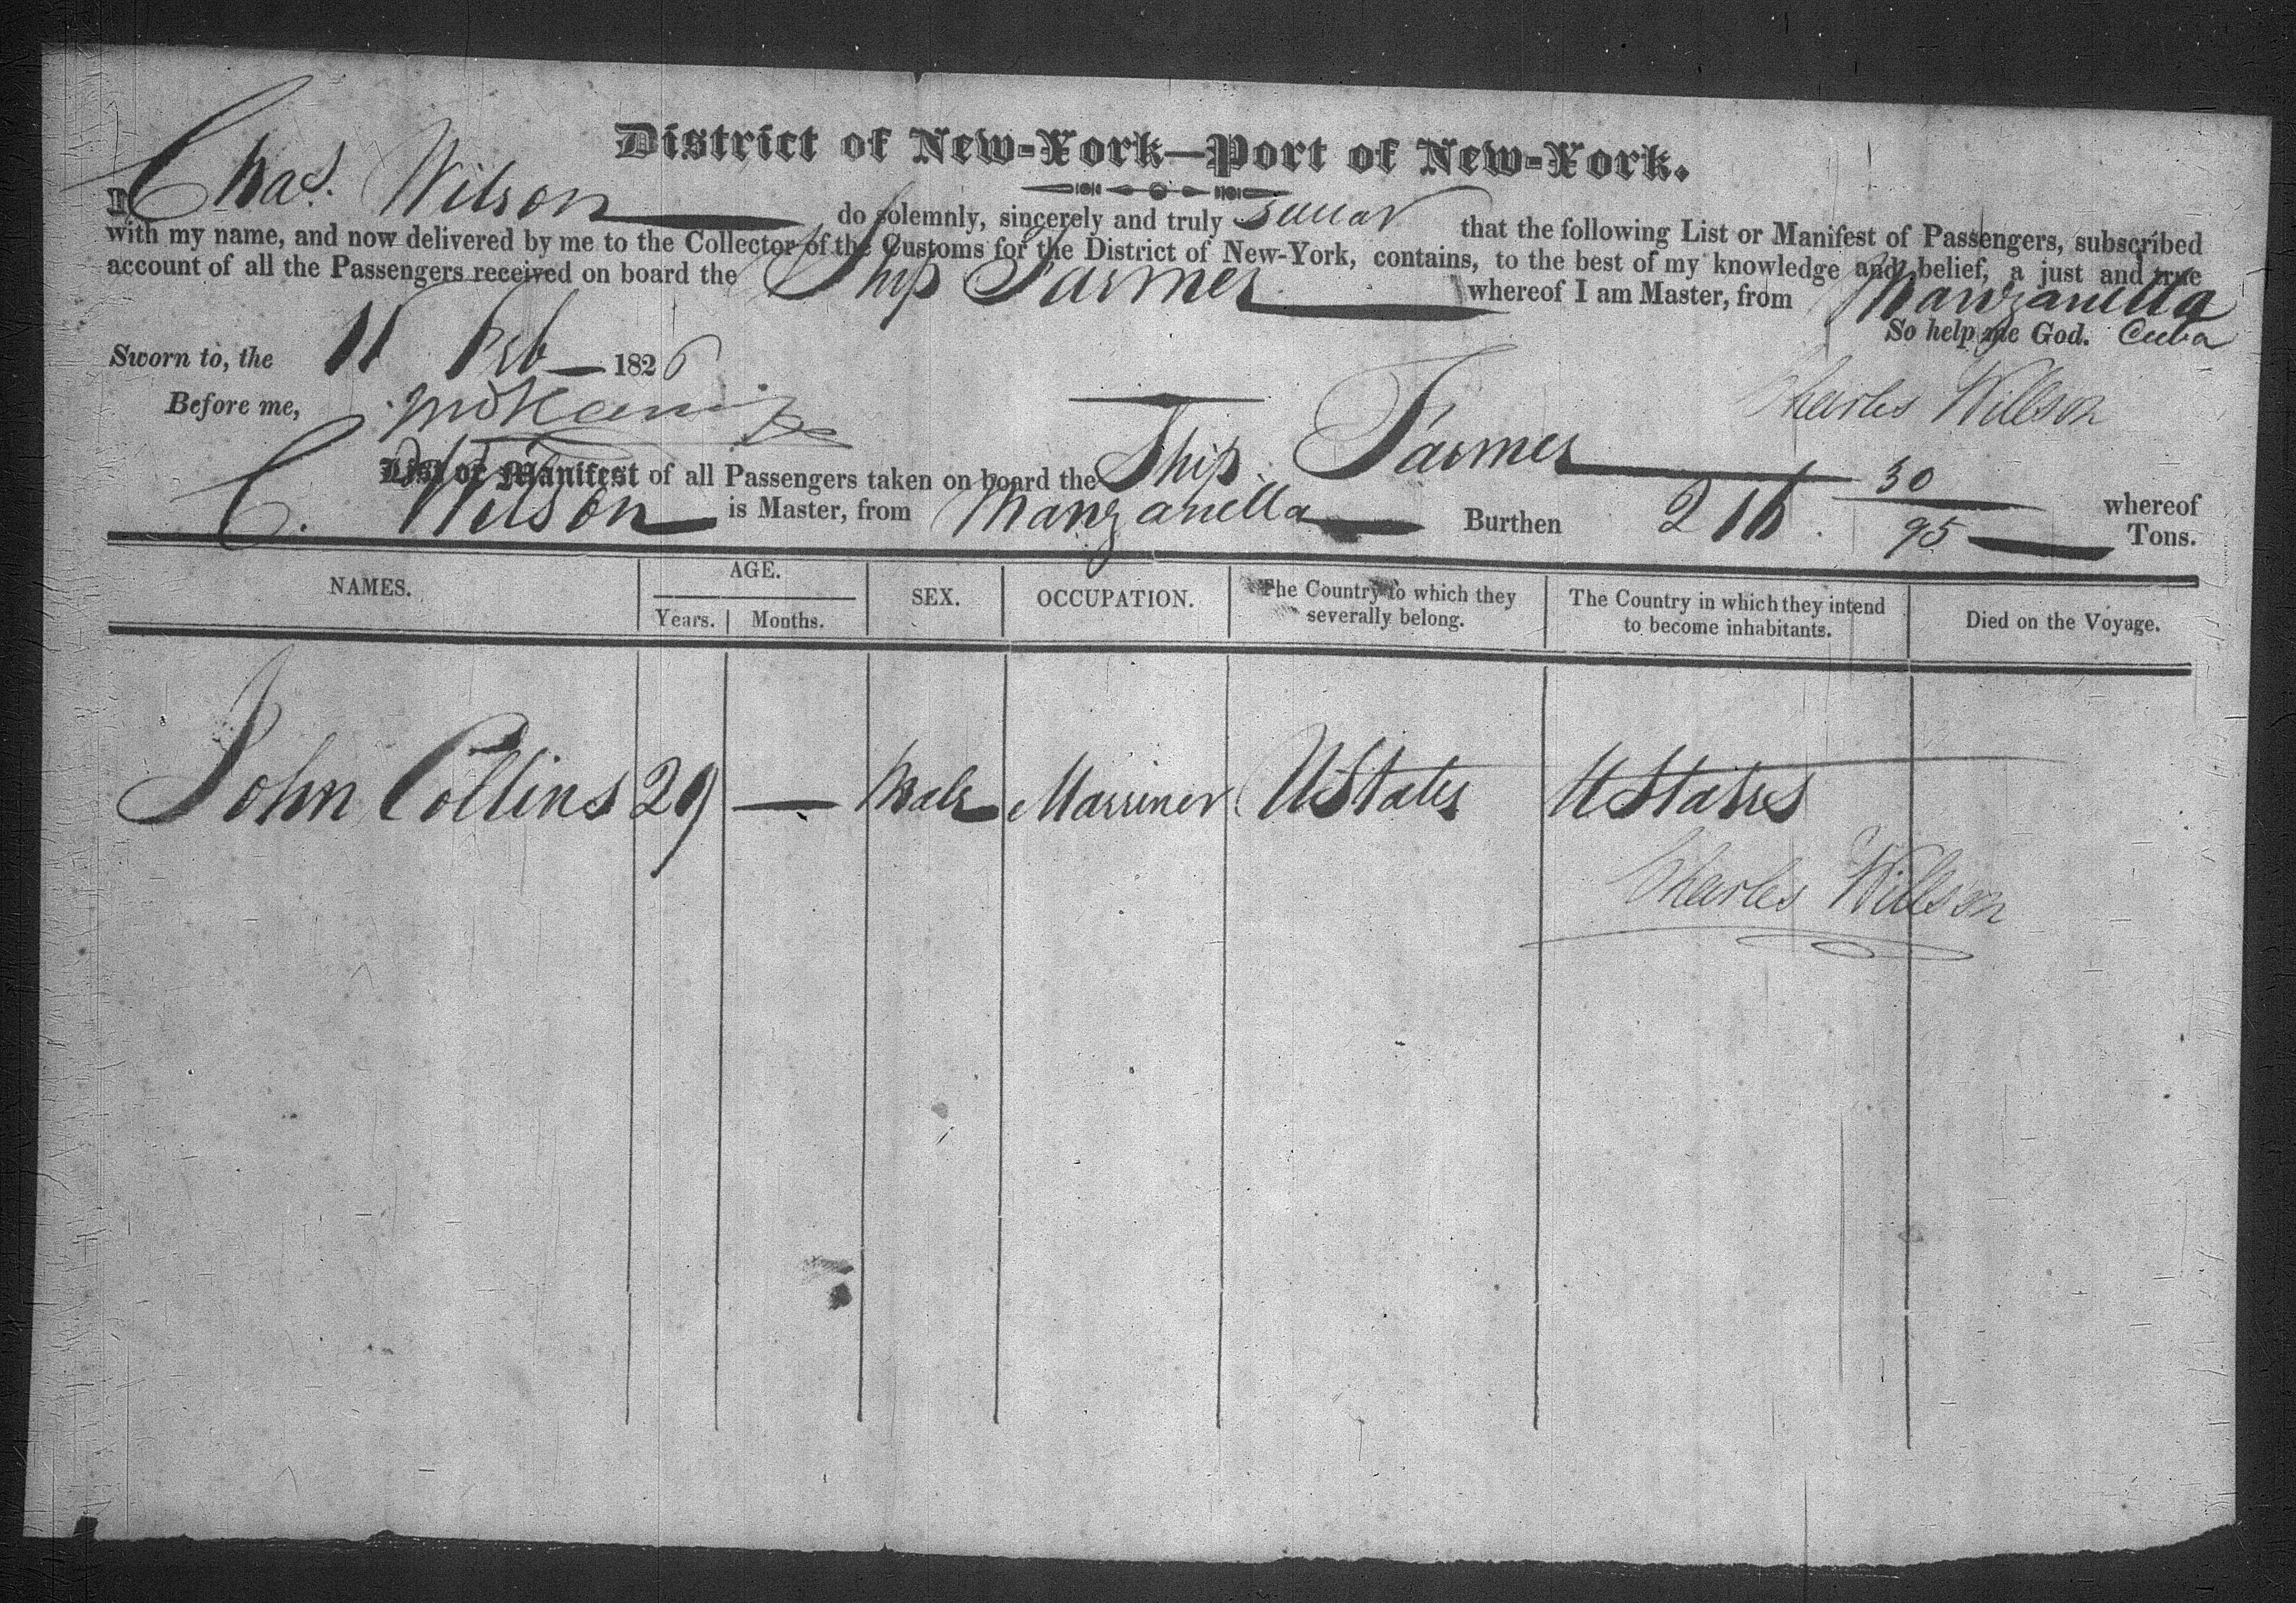 District of New-York—Port of New-York.
I, Chas. Wilson do solemnly, sincerely and truly swear that the following List or Manifest of Passengers, subscribed
with my name, and now delivered by me to the Collector of the Customs for the District of New-York, contains, to the best of my knowledge and belief, a just and true
account of all the Passengers received on board the Ship Farmer whereof I am Master, from Manzanella
Cuba
So help me God.
Sworn to, the 11 Feb 1826
Charles Willson
Before me,
List or Manifest of all Passengers taken on board the Ship Farmer whereof
C. Wilson is Master, from Manzanella Burthen 216 30/95 Tons.
NAMES. AGE. SEX. OCCUPATION. The Country to which they severally belong. The Country in which they intend to become inhabitants. Died on the Voyage.
Years. Months.
John Collins 29 — Male Marriner UStates UStates
Charles Willson